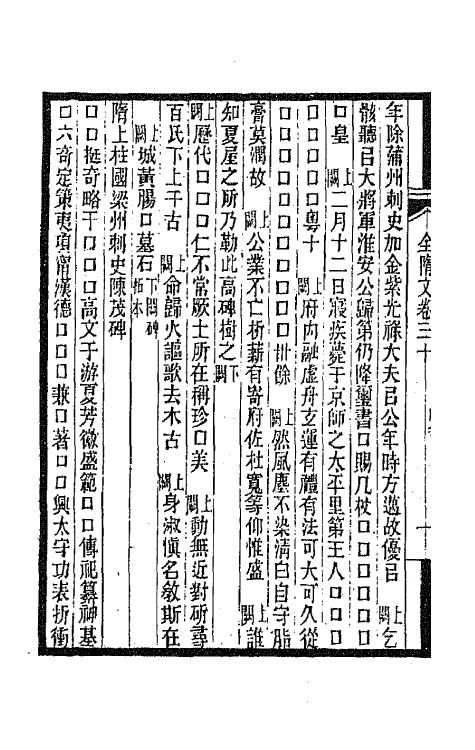 全隋文卷三十
十
年除蒲州刺史加金紫光祿大夫㠯公年時方邁故優㠯上闕乞
骸聽㠯大將軍淮安公歸第仍降璽書口賜几杖口口口口口口
口皇上闕二月十二日寢疾薨于京師之太平里第王人口口口
口口口口粵十上闕府內融虛舟玄運有禮有法可大可久從
口口口口口口口卌餘上闕然風塵不染清白自守脂
膏莫潤故上闕公業不亡析薪有寄府佐杜寬等仰惟盛上闕誰
知夏屋之所乃勒此高碑樹之下闕
上闕歷代口口口仁不常厥土所在稱珍口美上闕動無近對研尋
百氏下上千古上闕命歸火謳歌去木古上闕身淑愼名敎斯在
上闕城黃腸口墓石下闕碑拓本
隋上柱國梁州刺史陳茂碑
口口挺奇略于口口口高文于游夏芳徽盛範口口傳祀纂神基
口六奇定策夷項甯漢德口口口兼口著口口興太守功表折衝